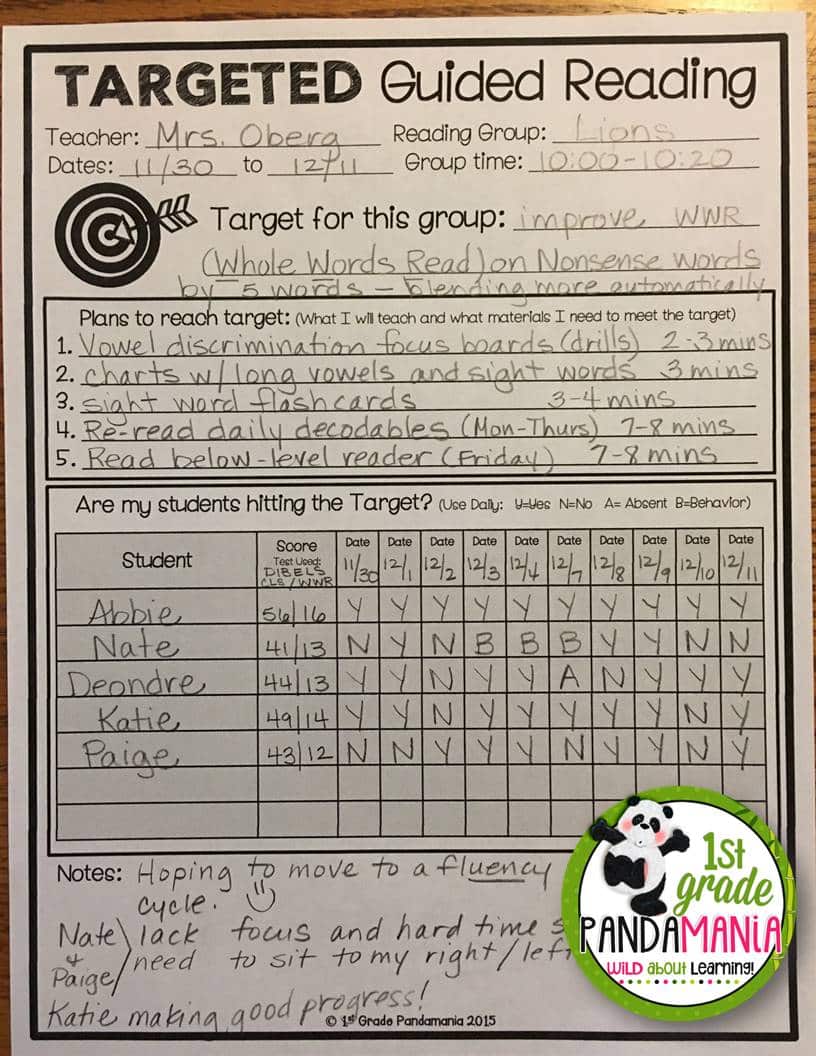 TARGETED Guided Reading
Teacher: Mrs. Oberg Reading Group: Lions
Dates: 11/30 to 12/11 Group time: 10:00-10:20
Target for this group: improve WWR
(Whole Words Read) on Nonsense words
by 5 words - blending more automatically
Plans to reach target: (What I will teach and what materials I need to meet the target)
1. Vowel discrimination focus boards (drills) 2-3 mins
2. charts w/ long vowels and sight words 3 mins
3. sight word flashcards 3-4 mins
4. Re-read daily decodables (Mon-Thurs) 7-8 mins
5. Read below-level reader (Friday) 7-8 mins
Are my students hitting the Target? (Use Daily: Y=Yes N=No A=Absent B=Behavior)
Student Score Test Used: DIBELS CLS/WWR Date 11/30 Date 12/1 Date 12/2 Date 12/3 Date 12/4 Date 12/7 Date 12/8 Date 12/9 Date 12/10 Date 12/11
Abbie 56/16 Y Y Y Y Y Y Y Y Y Y
Nate 41/13 N Y N B B B Y Y N N
Deondre 44/13 Y Y N Y Y A N Y Y Y
Katie 49/14 Y Y N Y Y Y Y Y N Y
Paige 43/12 N N Y Y Y N Y Y N Y
Notes: Hoping to move to a fluency
cycle.
Nate lack focus and hard time
& need to sit to my right/
Paige
Katie making good progress!
© 1st Grade Pandamania 2015
1st
grade
PANDAMANIA
WILD about Learning!